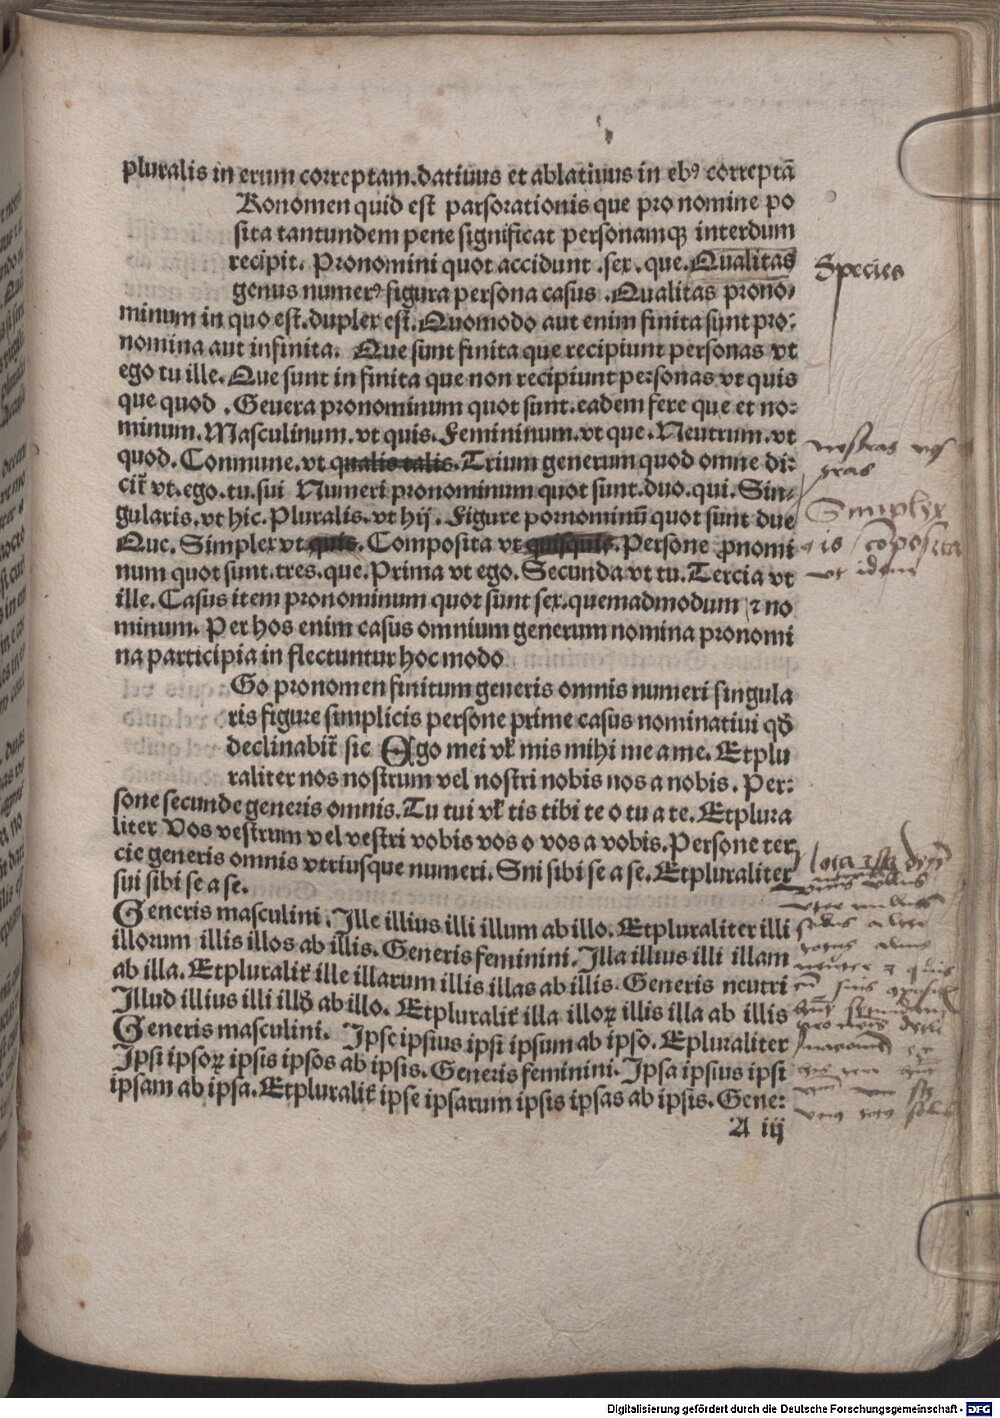 pluralis in erum correptam.datiuus et ablatiuus in ebꝰ correptā
Ronomen quid est parsorationis que pro nomine po
sita tantundem pene significat personamqꝫ interdum
recipit. Pronomini quot accidunt .sex. que.Qualitas
Species
genus numerꝰ figura persona casus .Qualitas prono⸗
minum in quo est.duplex est.Quomodo aut enim finita sunt pro⸗
nomina aut infinita. Que sunt finita que recipiunt personas vt
ego tu ille.Que sunt in finita que non recipiunt personas vt quis
que quod .Genera pronominum quot sunt.eadem fere que et no⸗
minum.Masculinum.vt quis.Femininum.vt que.Neutrum.vt
quod.Commune.vt qualis talis.Trium generum quod omne di⸗
cit̄ vt.ego.tu.sui Numeri pronominum quot sunt.duo.qui.Sin⸗
gularis.vt hic.Pluralis.vt hij .Figure pornominū quot sunt due
Simplex
Que. Simplex vt quis. Composita vt quisquis.Persone ꝓnomi
qis Cōposita
num quot sunt.tres.que.Prima vt ego.Secunda vt tu.Tercia vt
vt idem
ille.Casus item pronominum quot sunt sex.quemadmodum ꝛ no
minum. Per hos enim casus omnium generum nomina pronomi
na participia in flectuntur hoc modo
Go pronomen finitum generis omnis numeri singula
ris figure simplicis persone prime casus nominatiui qđ
declinabit̄ sic Ego mei vł mis mihi me a me. Et plu
raliter nos nostrum vel nostri nobis nos a nobis. Per⸗
sone secunde generis omnis.Tu tui vł tis tibi te o tu a te.Et plura
liter Vos vestrum vel vestri vobis vos o vos a vobis.Persone ter
cie generis omnis vtriusque numeri. Sui sibi se a se.Et pluraliter
sui sibi se a se.
Generis masculini. Ille illius illi illum ab illo. Et pluraliter illi
illorum illis illos ab illis.Generis feminini. Illa illius illi illam
ab illa.Et pluralit̄ ille illarum illis illas ab illis. Generis neutri
Illud illius illi illđ ab illo. Et pluralit̄ illa illoꝝ illis illa ab illis
Generis masculini. Ipse ipsius ipsi ipsum ab ipso. Epluraliter
Ipsi ipsoꝝ ipsis ipsos ab ipsis.Generis feminini. Ipsa ipsius ipsi
ipsam ab ipsa.Et pluralit̄ ipse ipsarum ipsis ipsas ab ipsis. Gene⸗
A iij
Digitalisierung gefördert durch die Deutsche Forschungsgemeinschaft - DFG